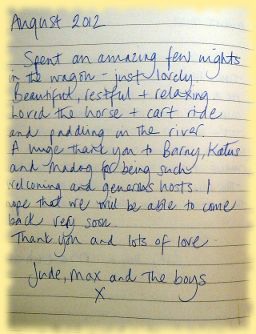 August 2012
Spent an amazing few nights
in the wagon - just lovely.
Beautiful, restful + relaxing
Loved the horse + cart ride
and paddling in the river.
A huge thank you to Barny, Katus
and Madog for being such
welcoming and generous hosts. I
hope that we will be able to come
back very soon.
Thank you and lots of love
Jude, Max and the boys
X